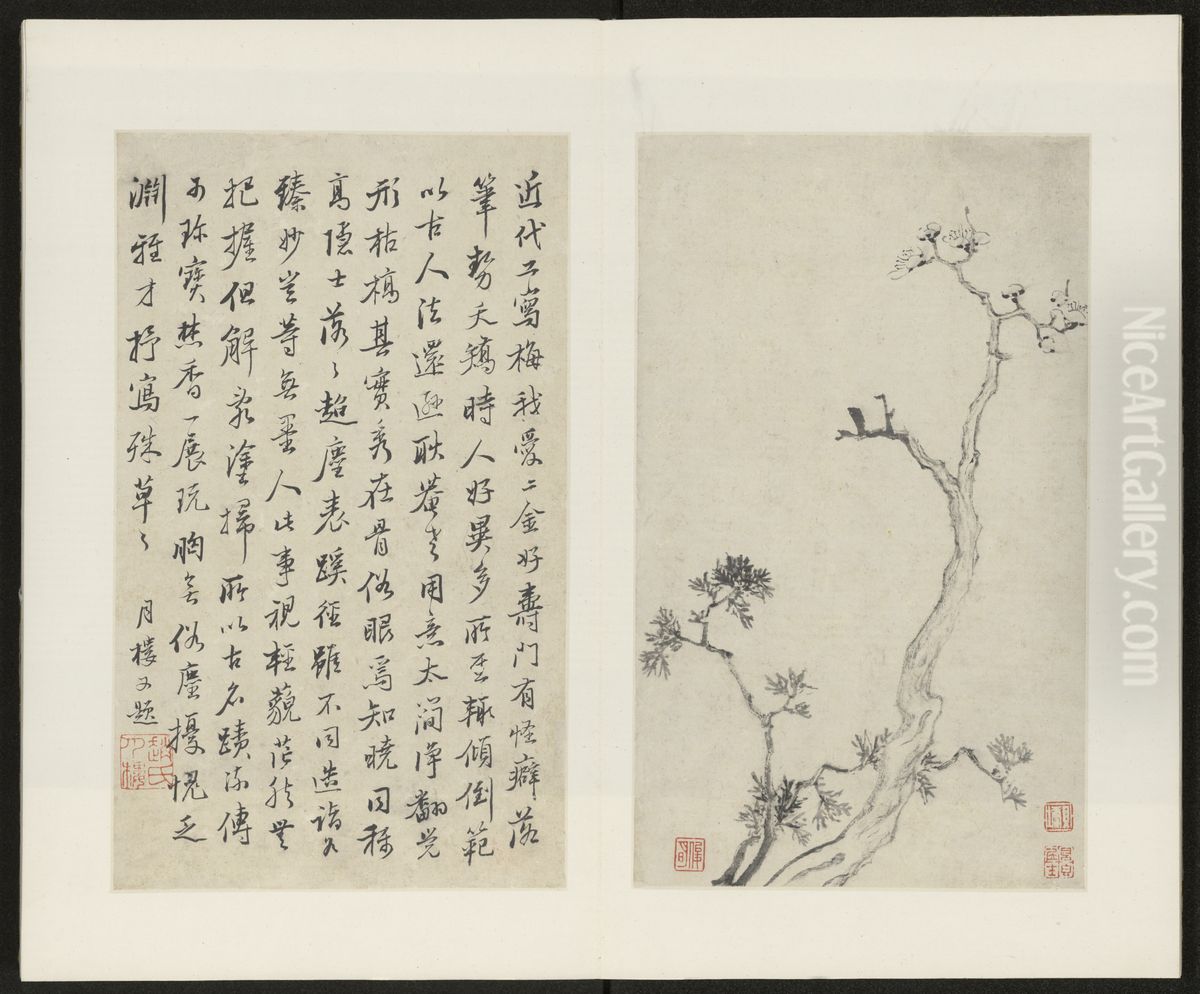 近代工寫梅我愛二金好壽門有怪癖落
筆勢夭矯時人好異多所至輒傾倒範
以古人法還遜耿菴老用意太簡淨翻覺
形枯槁其實秀在骨俗眼焉知曉同稱
高隱士落〻超塵表蹊徑雖不同造詣久
臻妙豈等無墨人此事視輕藐茫然無
把握但解亂塗掃所以古名蹟流傳
可珍寶焚香一展玩胸無俗塵擾愧乏
淵雅才抒寫殊草〻
月樓又題
NiceArtGallery.com